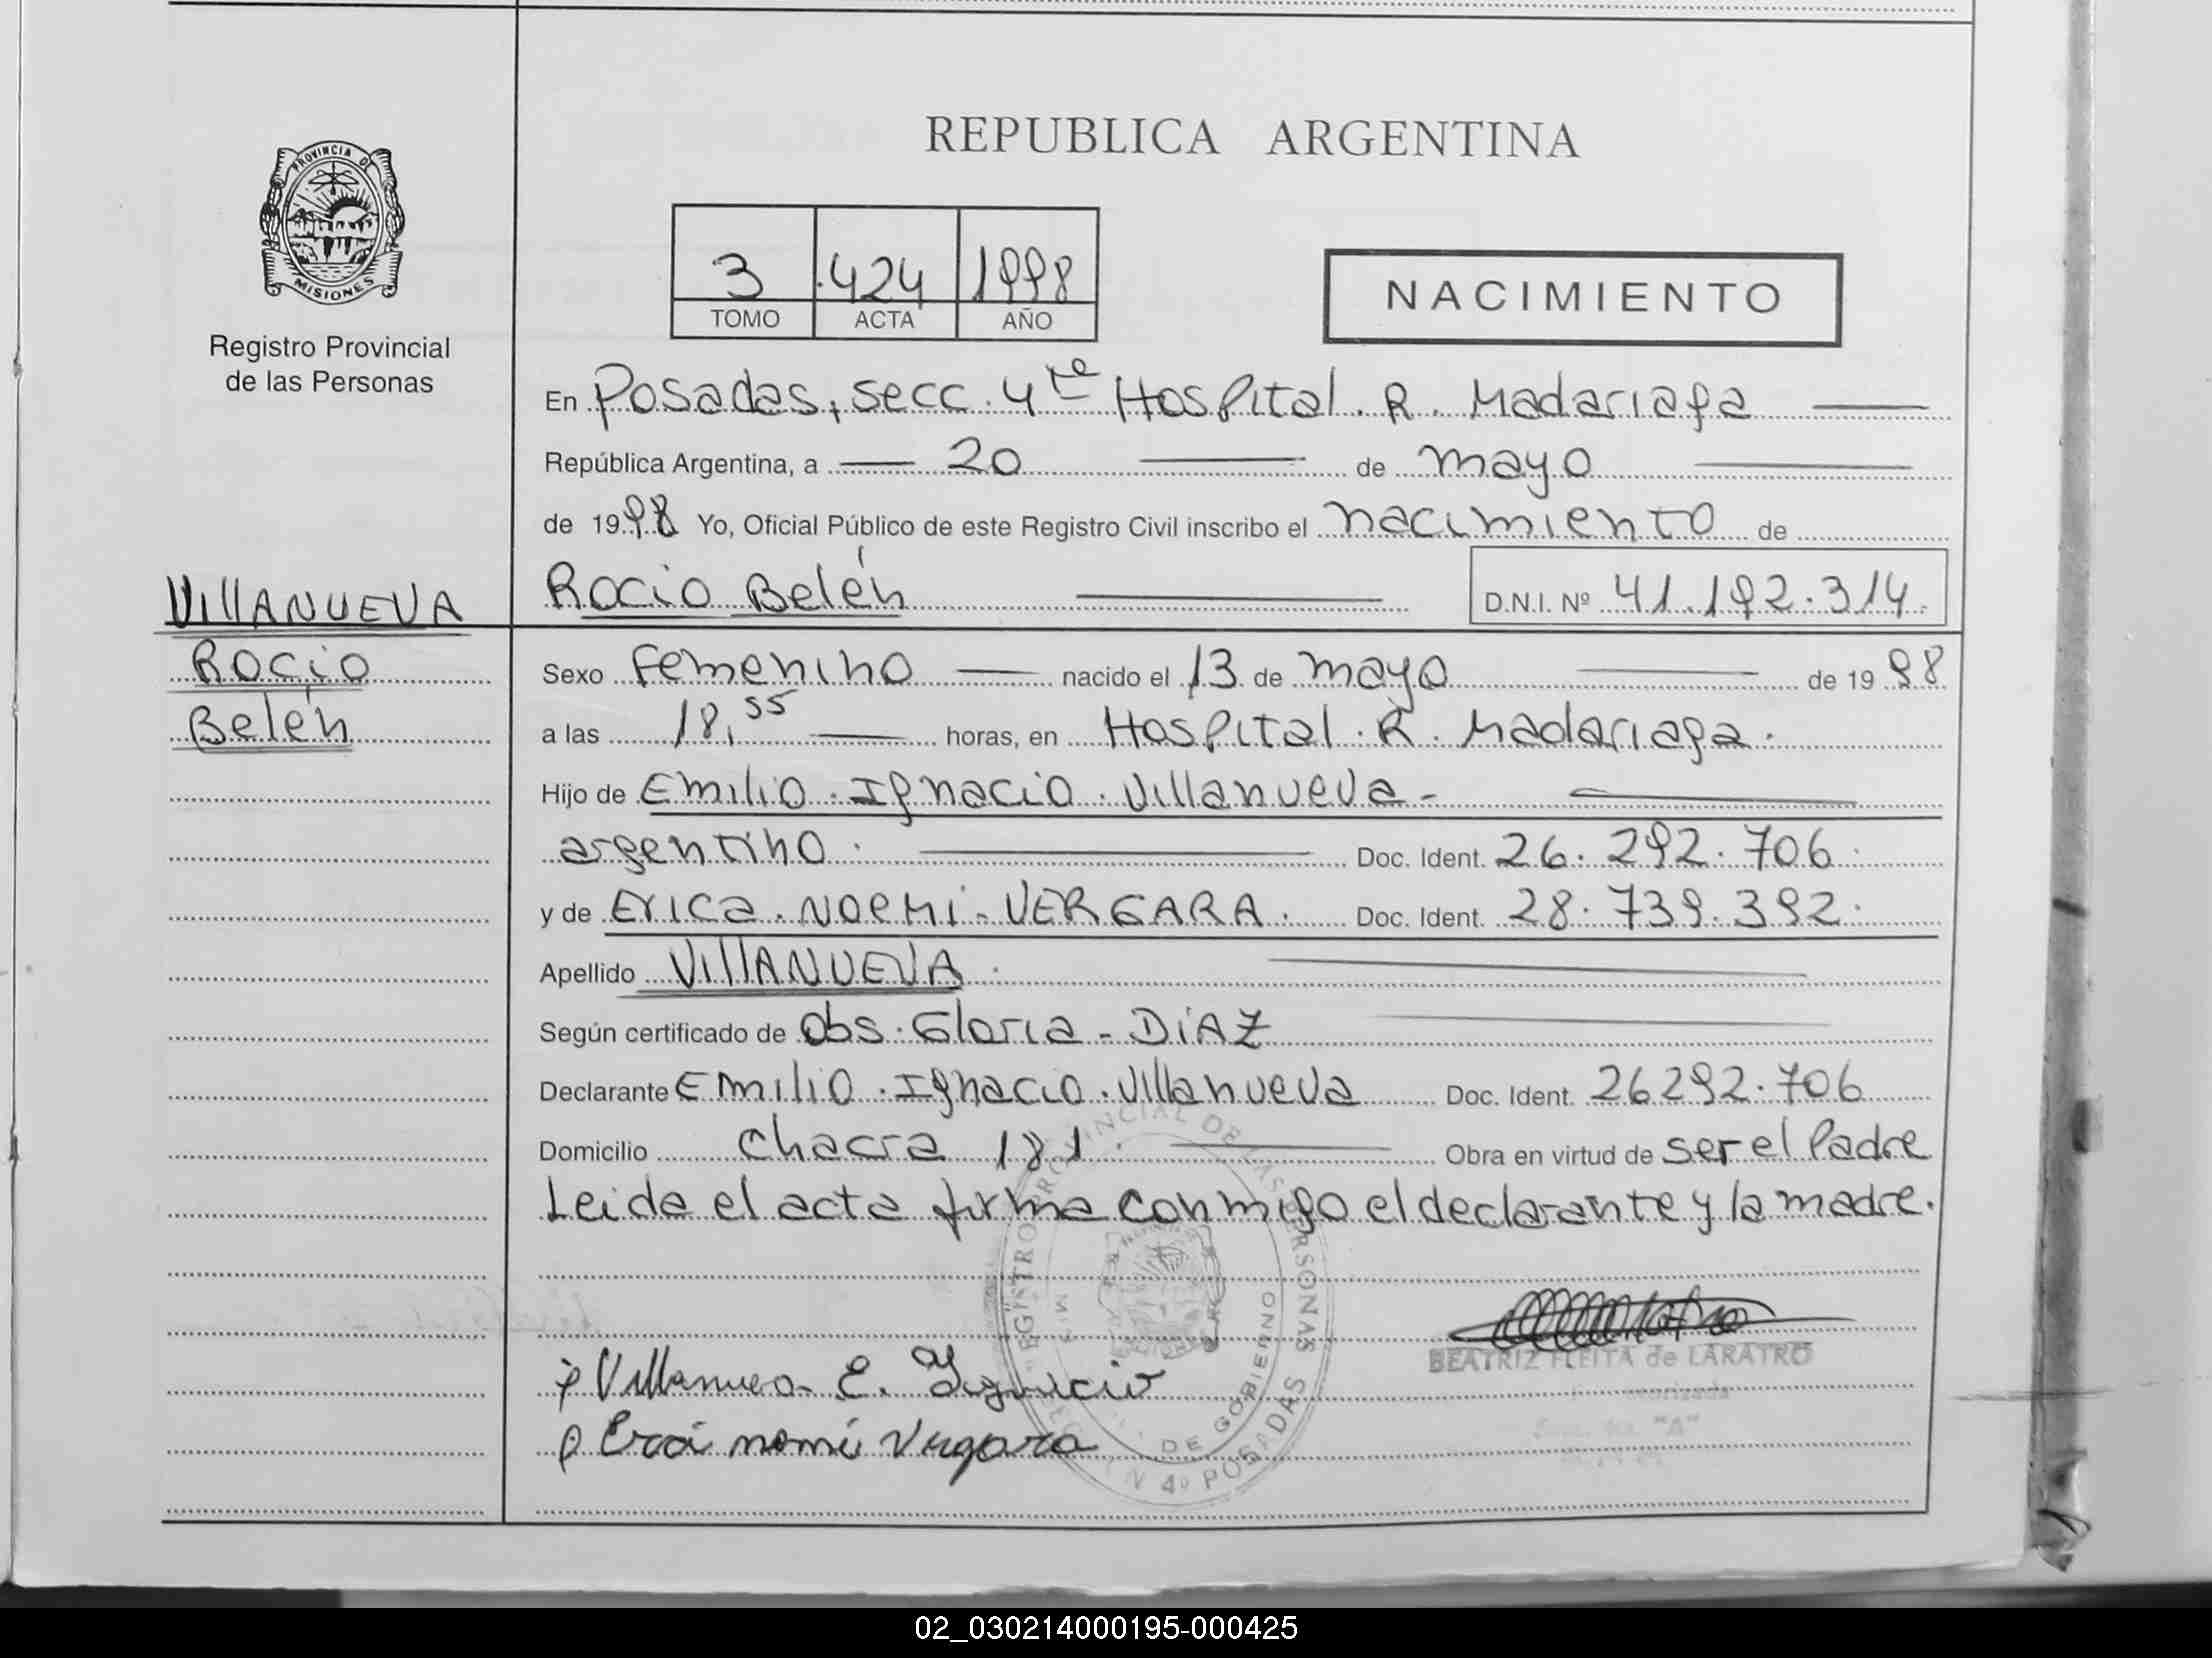 REPUBLICA ARGENTINA
PROVINCIA DE
MISIONES
Registro Provincial
de las Personas
3 424 1998
TOMO ACTA AÑO
NACIMIENTO
En Posadas, secc. 4ta Hospital. R. Madariaga
República Argentina, a 20 de mayo
de 1998 Yo, Oficial Público de este Registro Civil inscribo el nacimiento de
VillANUEVA
Rocio Belén D.N.I. Nº 41.192.314.
Rocio
Belén
Sexo Femenino nacido el 13 de mayo de 1998
a las 18,55 horas, en Hospital. R. Madariaga.
Hijo de Emilio. Ignacio. Villanueva-
argentino. Doc. Ident. 26.292.706.
y de Erica. NOEMi- VERGARA. Doc. Ident. 28.739.392.
Apellido VillANUEVA.
Según certificado de Obs. Gloria - DiAZ
Declarante Emilio. Ignacio. Villanueva Doc. Ident. 26292.706
Domicilio chacra 181. Obra en virtud de ser el Padre
Leida el acta firma conmigo el declarante y la madre.
REGISTRO PROVINCIAL DE LAS PERSONAS
DE GOBIERNO
4º POSADAS
BEATRIZ FLEITA de LARATRO
"A"
Villanueva E. Ygnacio
Vergara
02_030214000195-000425